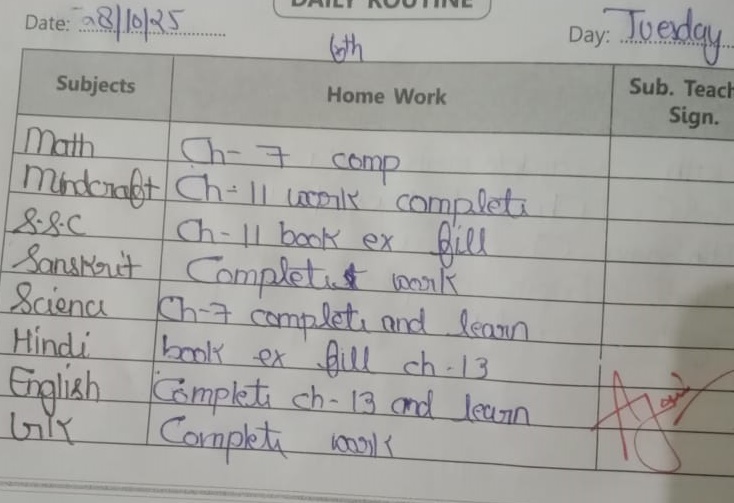 DAILY ROUTINE
Date: 28/10/25 Day: Tuesday
6th
Subjects Home Work Sub. Teach Sign.
Math Ch-7 comp
Mindcraft Ch-11 work complete
S.S.C Ch-11 book ex fill
Sanskrit Complete work
Science Ch-7 complete and learn
Hindi book ex fill ch-13
English Complete ch-13 and learn
G.K Complete work